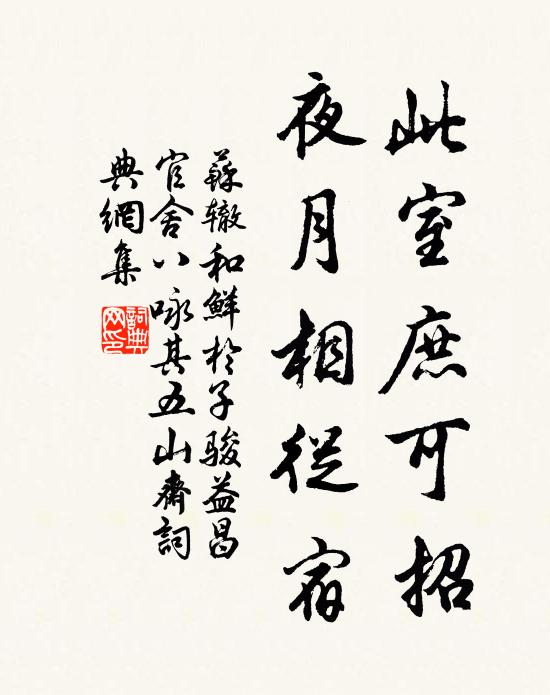 此室庶可招
夜月相從宿
蘇辙和鮮於子駿益昌
官舍八咏其五山齋詞
典網集
詞典
网印